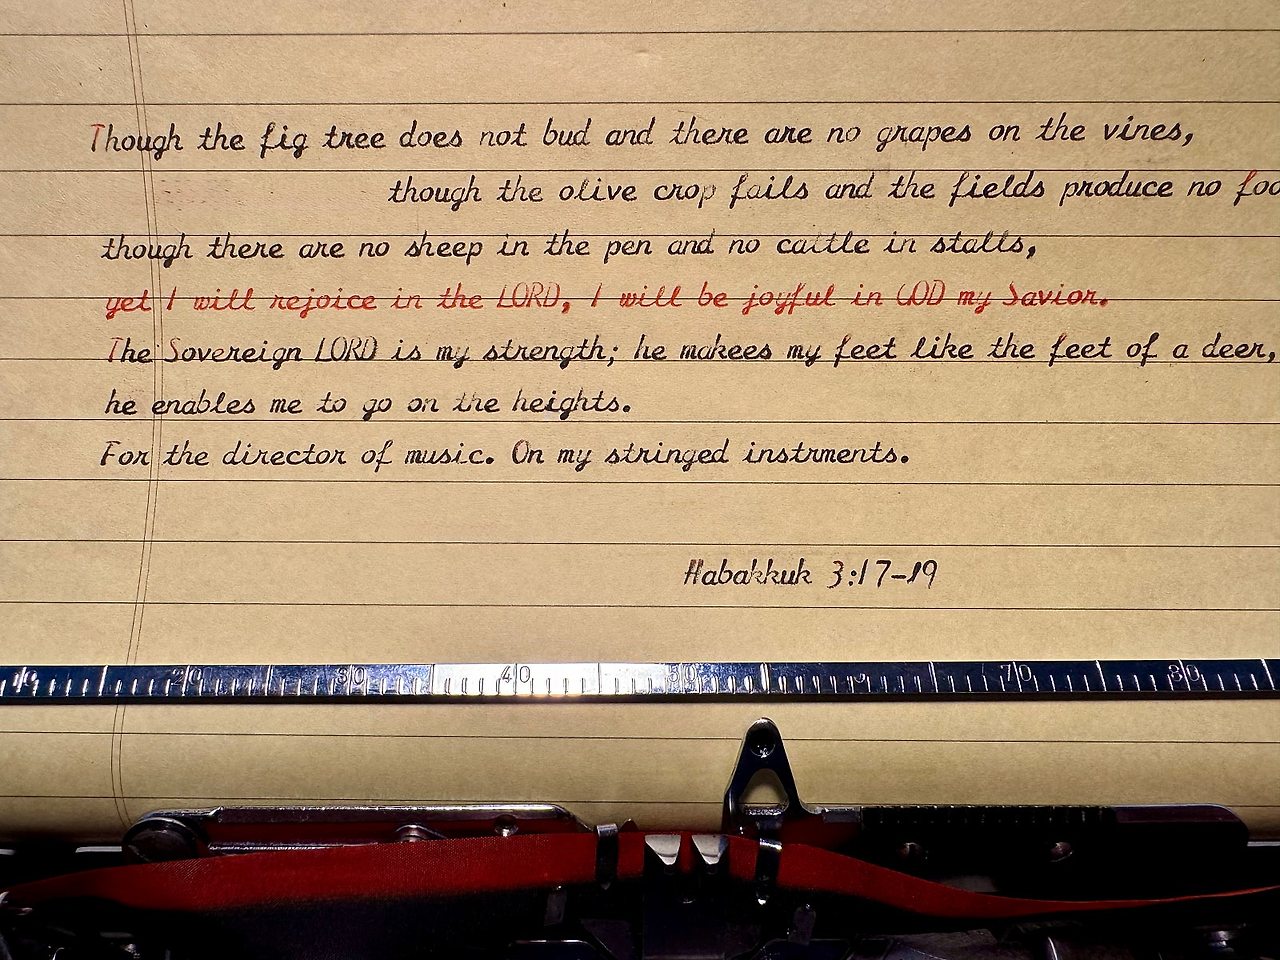 Though the fig tree does not bud and there are no grapes on the vines,
though the olive crop fails and the fields produce no foo
though there are no sheep in the pen and no cattle in stalls,
yet I will rejoice in the LORD, I will be joyful in GOD my Savior.
The Sovereign LORD is my strength; he makees my feet like the feet of a deer,
he enables me to go on the heights.
For the director of music. On my stringed instrments.
Habakkuk 3:17-19
20 30 40 50 70 80